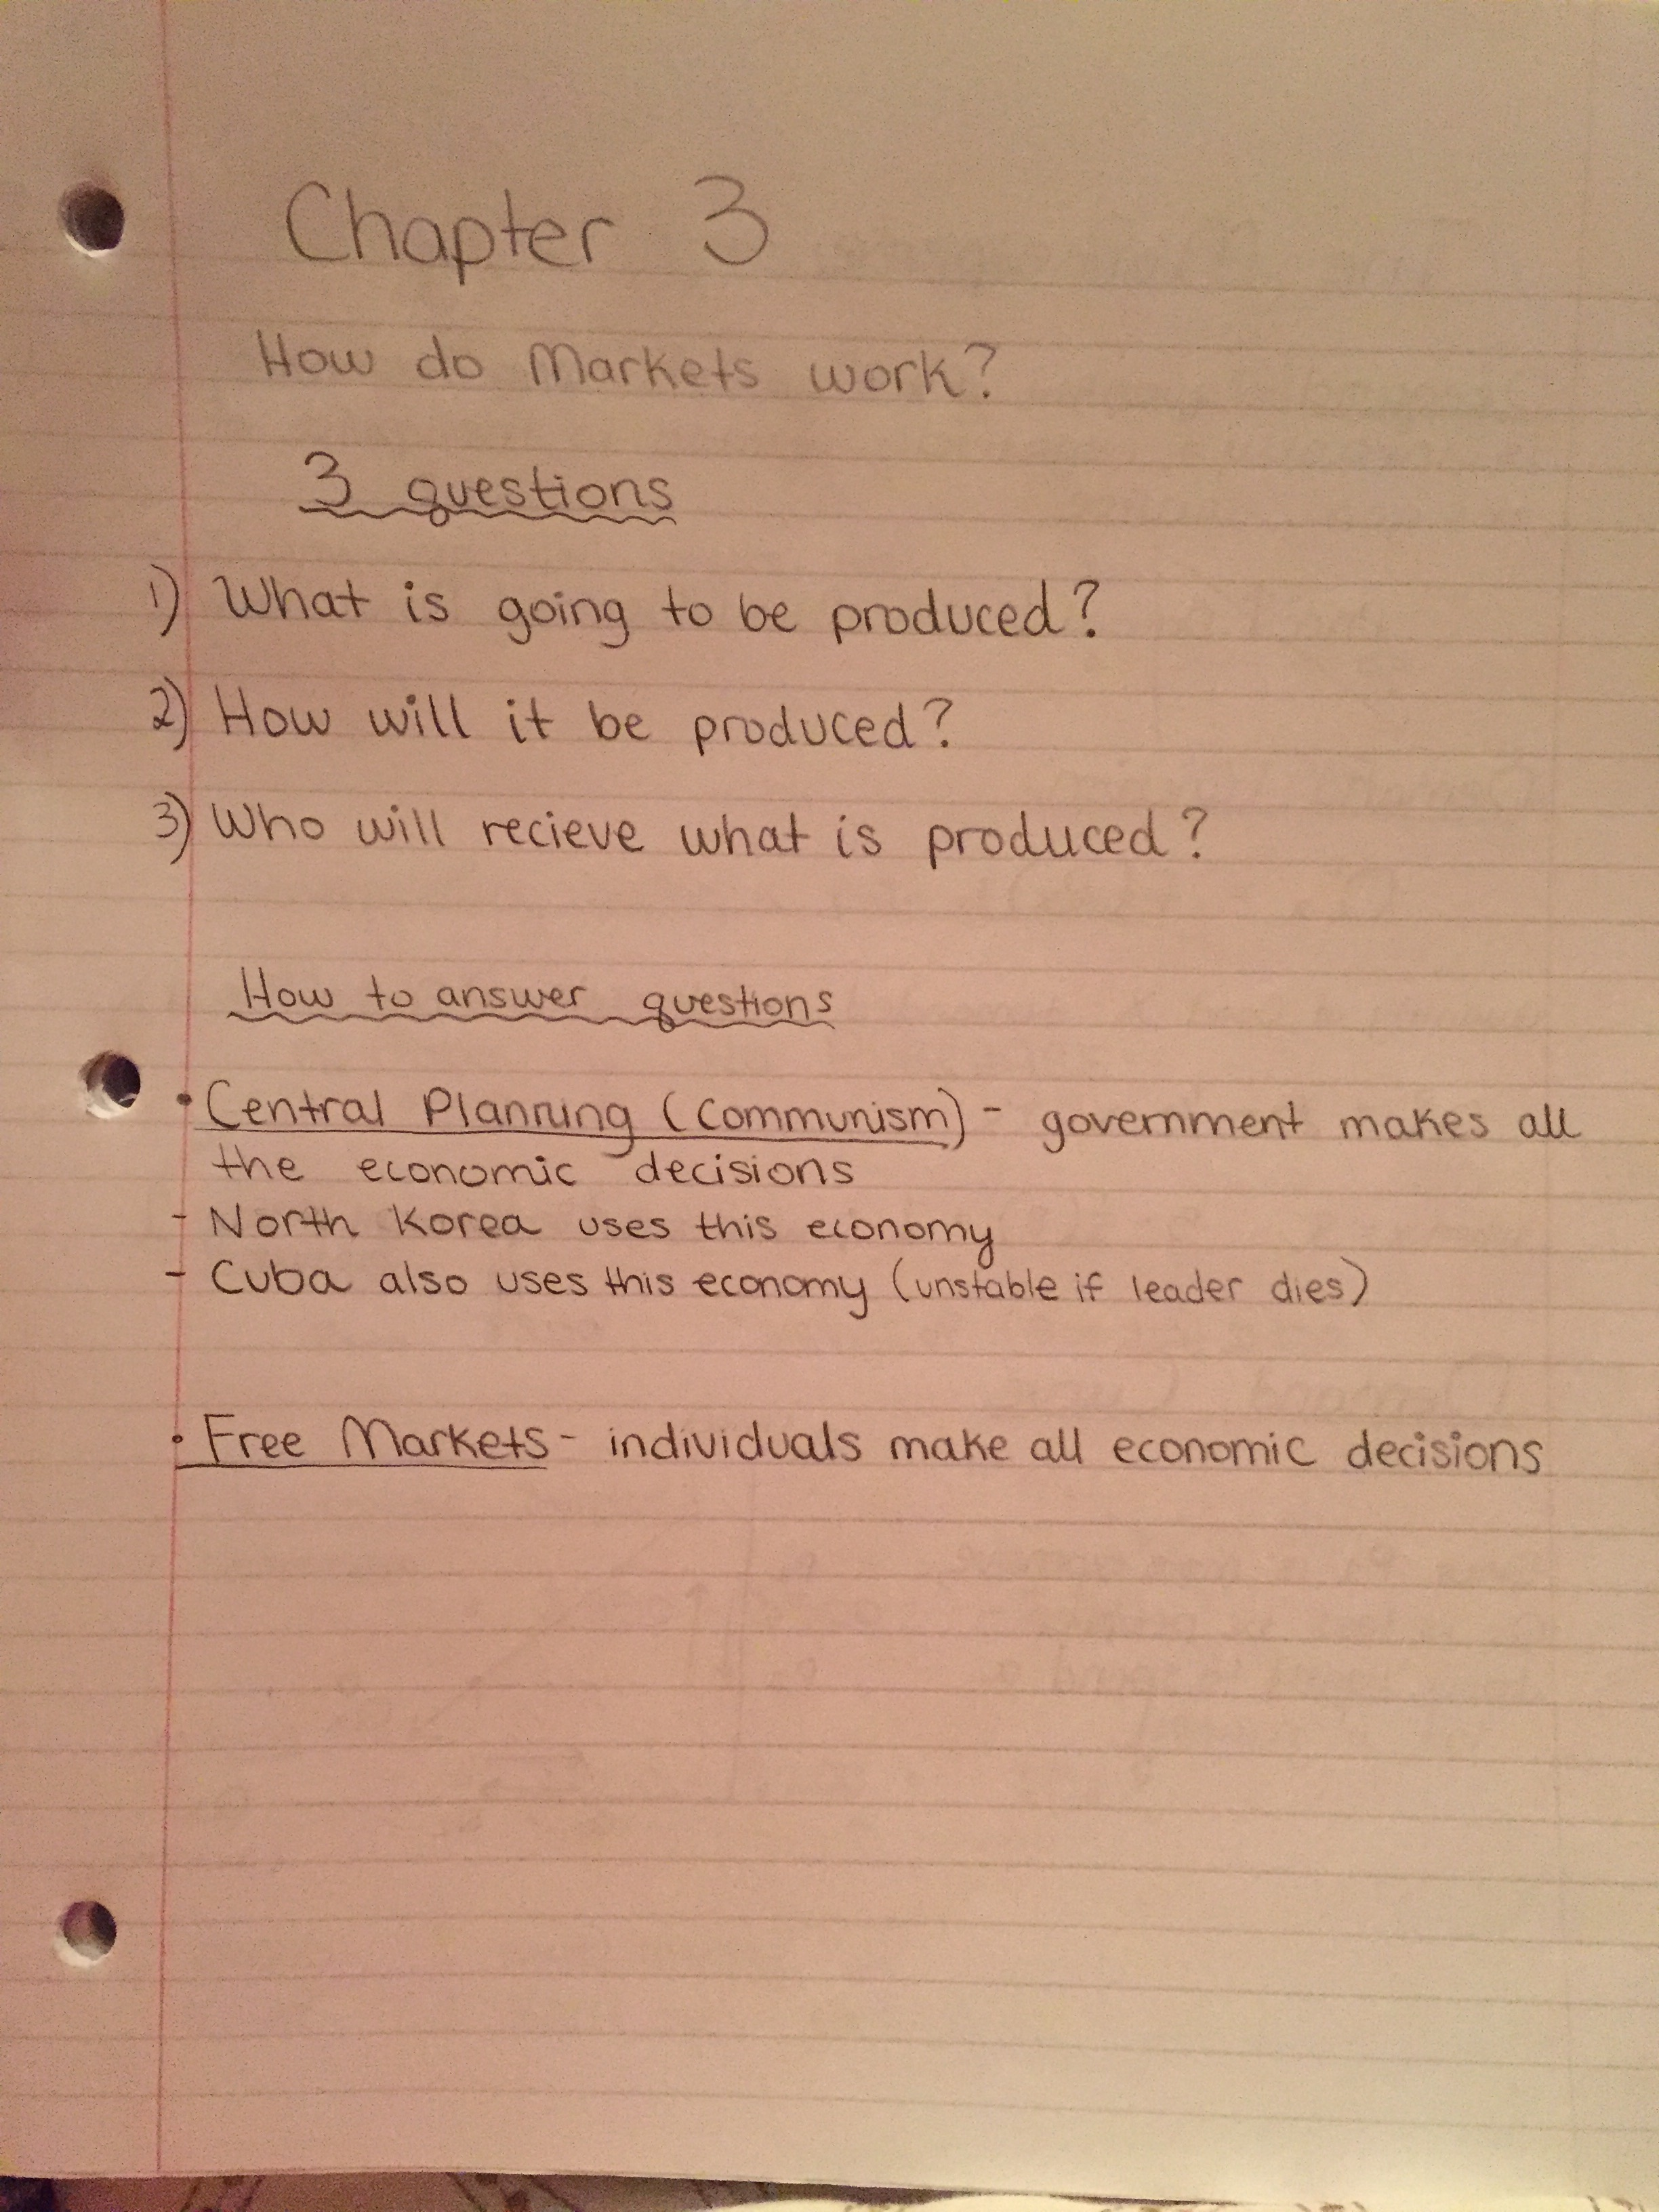 Chapter 3
How do Markets work?
3 questions
1) What is going to be produced?
2) How will it be produced?
3) Who will recieve what is produced?
How to answer questions
• Central Planning (Communism) - government makes all
the economic decisions
- North Korea uses this economy
- Cuba also uses this economy (unstable if leader dies)
• Free Markets - individuals make all economic decisions